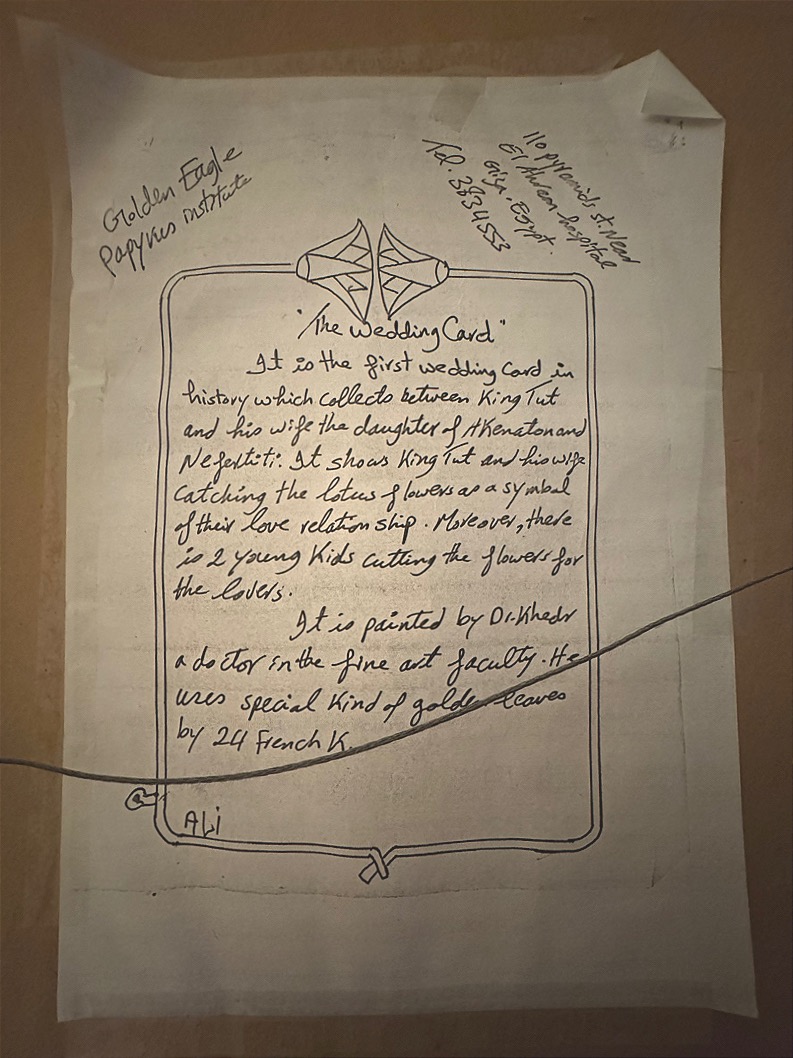 Golden Eagle
Papyrus institute
110 pyramids st. Nead
El Ahram hospital
Giza. Egypt.
Tel. 3834553
"The Wedding Card"
It is the first wedding Card in
history which collects between King Tut
and his wife the daughter of AKenaton and
Nefertiti. It shows King Tut and his wife
Catching the lotus flowers as a symbol
of their love relation ship. Moreover, there
is 2 young Kids cutting the flowers for
the lovers.
It is painted by Dr. Khedr
a doctor in the fine art faculty. He
uses special Kind of golden leaves
by 24 French K.
ALi